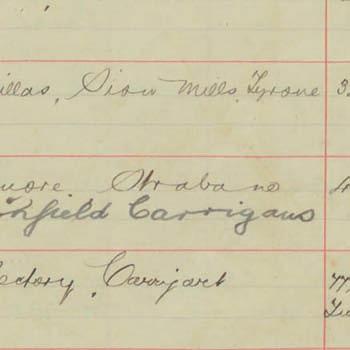 illas, Sion Mills, Tyrone 3
more Strabane 4
nfield Carrigans
ectory, Carrigart 77